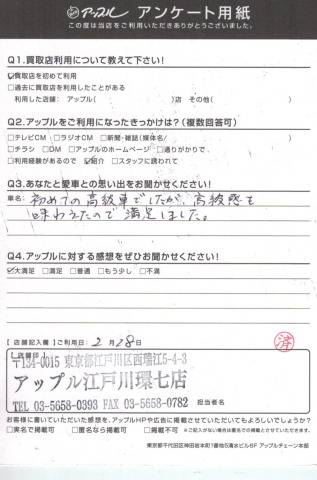 アップル アンケート用紙
この度は当店をご利用いただきありがとうございました。
Q1.買取店利用について教えて下さい!
☑買取店を初めて利用
□過去に買取店を利用したことがある
利用した店舗: アップル( )店 その他( )
Q2.アップルをご利用になったきっかけは?(複数回答可)
□テレビCM □ラジオCM □新聞・雑誌(媒体名/ )
□チラシ □DM □アップルのホームページ □通りがかりで、
□利用経験があるので ☑紹介 □スタッフに誘われて
Q3.あなたと愛車との思い出をお聞かせください!
車名:
初めての高級車でしたが、高級感を
味わえたので満足しました。
Q4.アップルに対する感想をぜひお聞かせください!
☑大満足 □満足 □普通 □もう少し □不満
【店舗記入欄】ご利用日: 2月28日
済
【店舗印】
〒134-0015 東京都江戸川区西瑞江5-4-3
アップル江戸川環七店
TEL 03-5658-0393 FAX 03-5658-0782
担当者名
お客様に書いていただいた感想を、アップルHPや広告に掲載させていただいてもよろしいでしょうか?
□実名で掲載可 □匿名なら掲載可 □掲載不可 ※ご記入がない場合は匿名での掲載とさせていただきます。
東京都千代田区神田岩本町1番地5清水ビル6F アップルチェーン本部